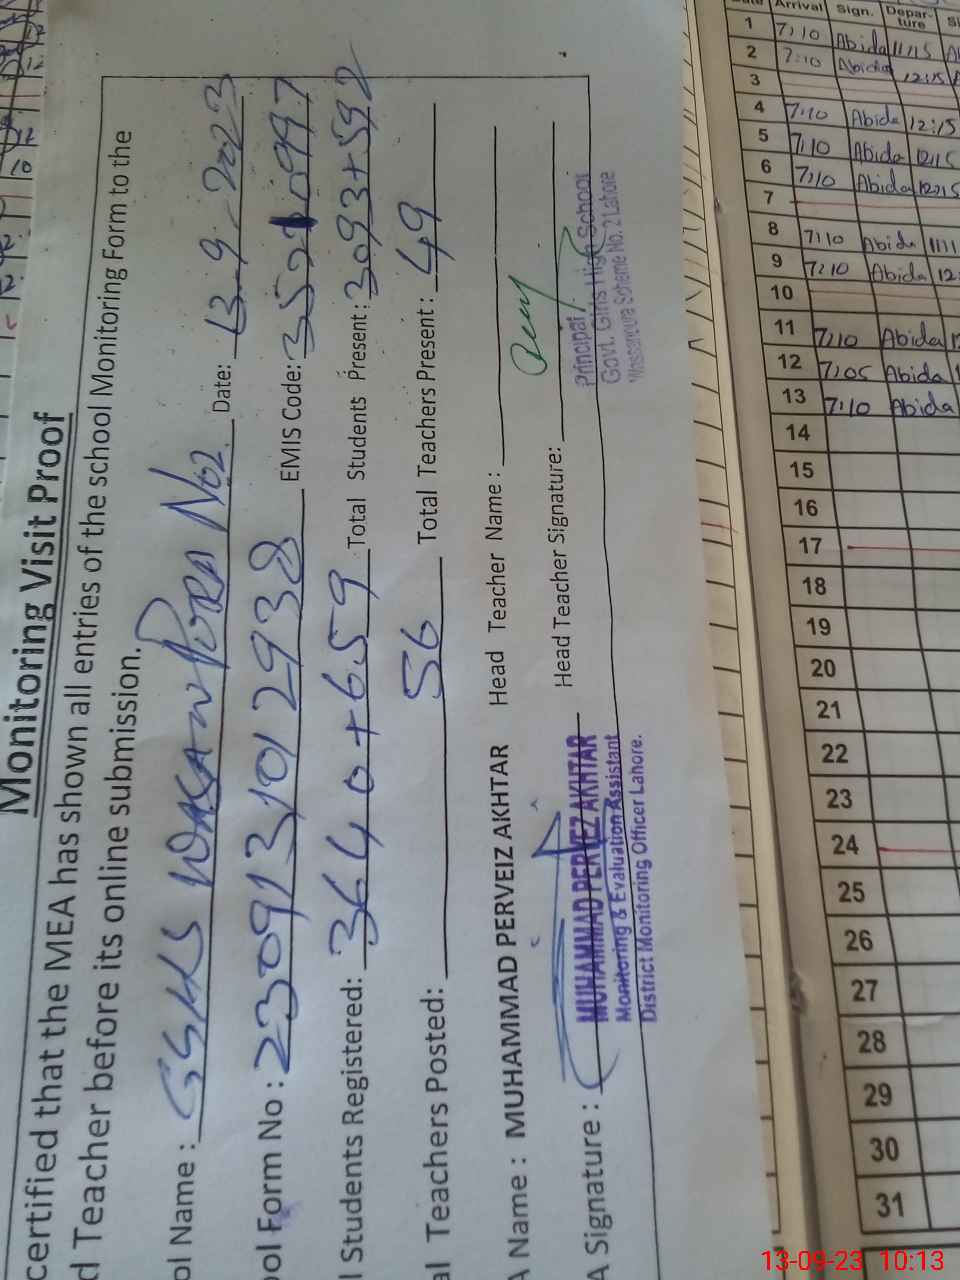 Monitoring Visit Proof
certified that the MEA has shown all entries of the school Monitoring Form to the
d Teacher before its online submission.
ol Name : GGHS WASAN PURA No2. Date: 13-9-2023
ool Form No : 2309131012938 EMIS Code:
l Students Registered: 3640+659 Total Students Present: 3093+592
al Teachers Posted: 56 Total Teachers Present: 49
A Name : MUHAMMAD PERVEIZ AKHTAR Head Teacher Name :
A Signature : Head Teacher Signature:
MUHAMMAD PERVEZ AKHTAR
Monitoring & Evaluation Assistant
District Monitoring Officer Lahore.
Principal
Govt. Girls High School
Wassanpura Scheme No. 2 Lahore
Arrival Sign. Depar-ture
1 7:10 Abida 11:15
2 7:10 Abida 12:15
3
4 7:10 Abida 12:15
5 7:10 Abida 12:15
6 7:10 Abida 12:15
7
8 7:10 Abida
9 7:10 Abida
10
11 7:10 Abida
12 7:05 Abida
13 7:10 Abida
14
15
16
17
18
19
20
21
22
23
24
25
26
27
28
29
30
31
13-09-23 10:13